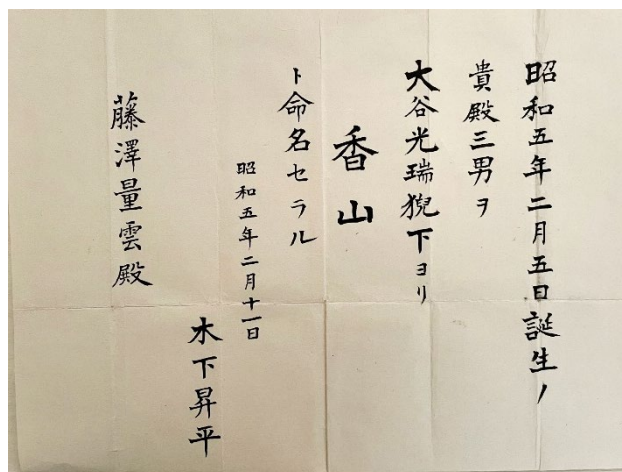 昭和五年二月五日誕生ノ
貴殿三男ヲ
大谷光瑞猊下ヨリ
香山
ト命名セラル
昭和五年二月十一日
木下昇平
藤澤量雲殿